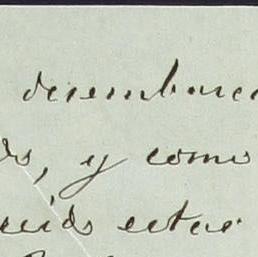 desembarc
ds, y como
reido estar